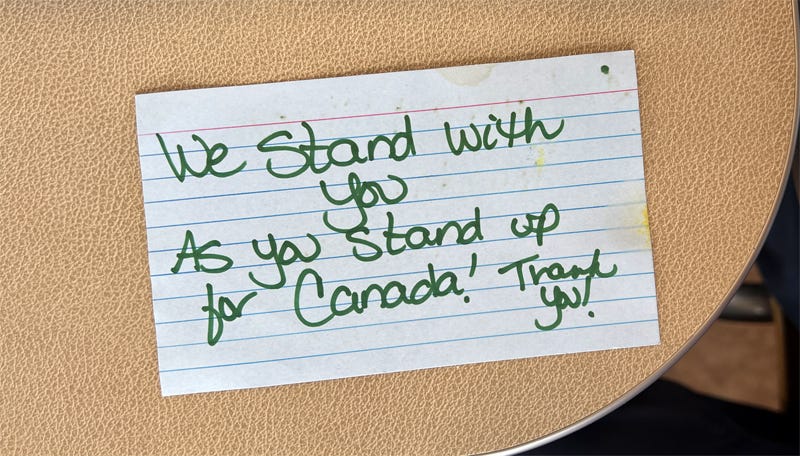 We Stand with
you
As you Stand up
for Canada! Thank
you!